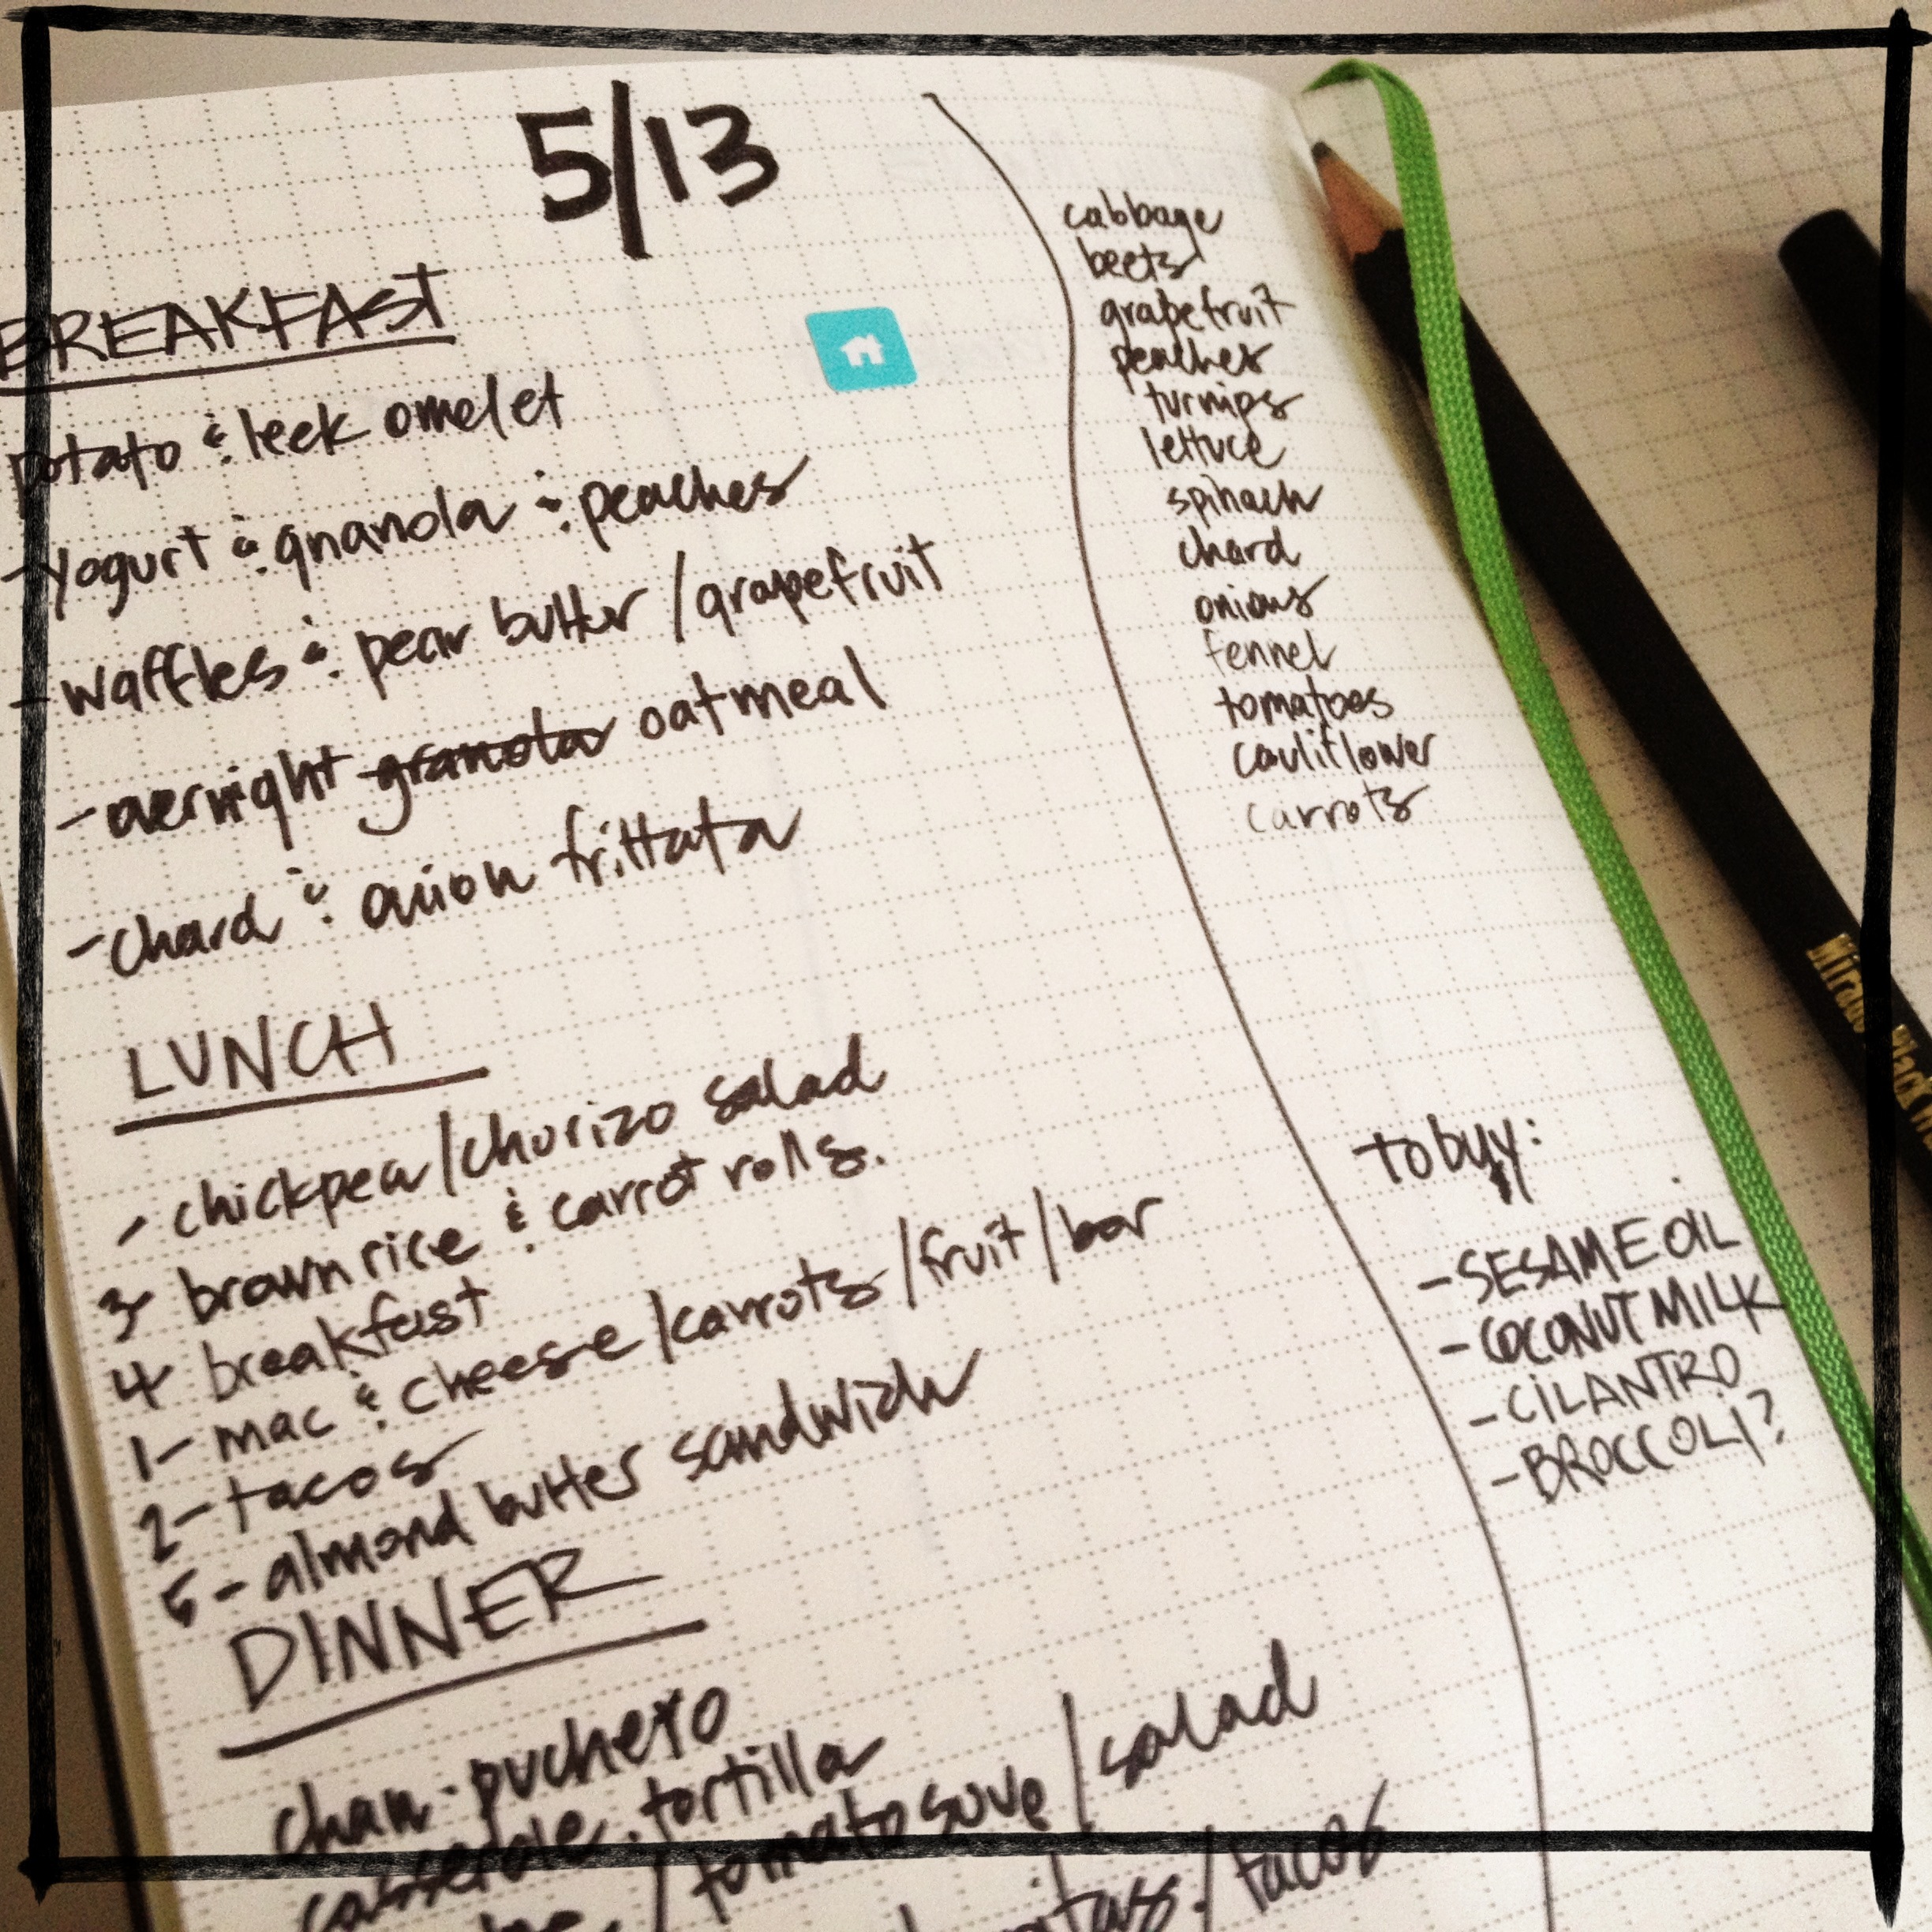 5/13
BREAKFAST
potato & leek omelet
- yogurt & gnanola & peaches
- waffles & pear butter / grapefruit
- overnight granola oatmeal
- chard & onion frittata
LUNCH
- chickpea/chorizo salad
3- brown rice & carrot rolls.
4- breakfast
1- mac & cheese/carrots/fruit/bar
2- tacos
5- almond butter sandwich
DINNER
puchero
casserole. tortilla
/ tomato / salad
/ tacos
cabbage
beets
grapefruit
peaches
turnips
lettuce
spinach
chard
onions
fennel
tomatoes
cauliflower
carrots
to buy:
- SESAME OIL
- COCONUT MILK
- CILANTRO
- BROCCOLI?
Black